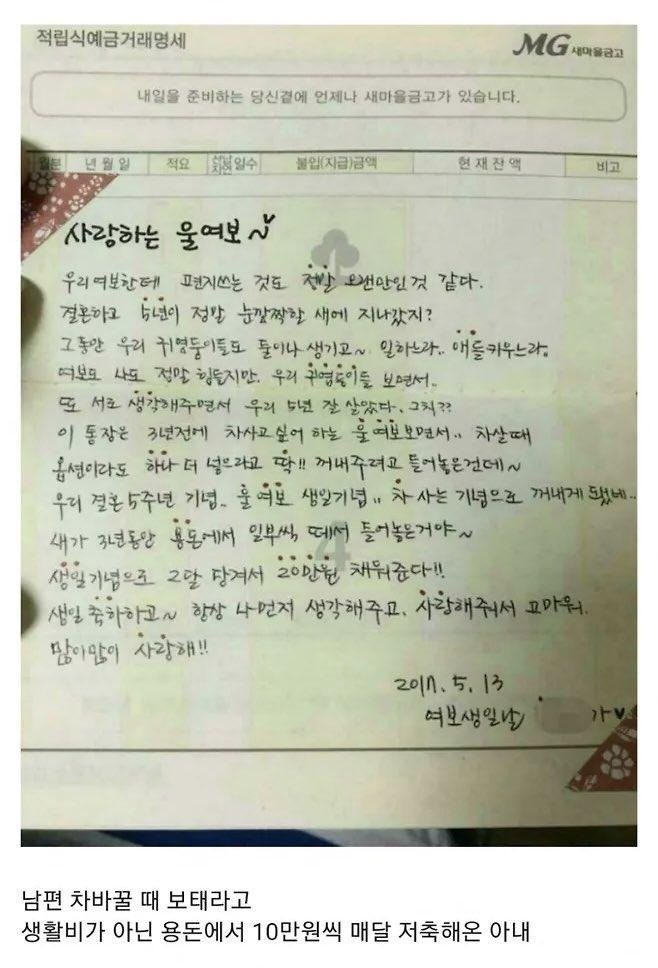 적립식예금거래명세
MG 새마을금고
내일을 준비하는 당신곁에 언제나 새마을금고가 있습니다.
월분 년월일 적요 선납 지연 일수 불입(지급)금액 현재잔액 비고
사랑하는 울여보~
우리여보한테 편지쓰는 것도 정말 오랜만인것 같다.
결혼하고 5년이 정말 눈깜짝할 새에 지나갔지?
그동안 우리 귀염둥이들도 둘이나 생기고~ 일하느라.. 애들키우느라,
여보도 나도 정말 힘들지만, 우리 귀염둥이들 보면서..
또 서로 생각해주면서 우리 5년 잘 살았다. 그치??
이 통장은 3년전에 차사고싶어 하는 울여보보면서.. 차살때
옵션이라도 하나 더 넣으라고 딱!! 꺼내주려고 들어놓은건데~
우리 결혼5주년 기념.. 울여보 생일기념.. 차 사는 기념으로 꺼내게 됐네..
내가 3년동안 용돈에서 일부씩 떼서 들어놓은거야~
생일기념으로 2달 당겨서 20만원 채워준다!!
생일 축하하고~ 항상 나먼저 생각해주고, 사랑해줘서 고마워.
많이많이 사랑해!!
2017. 5. 13
여보생일날 가♥
남편 차바꿀 때 보태라고
생활비가 아닌 용돈에서 10만원씩 매달 저축해온 아내